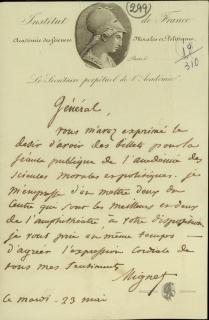 Institut de France
299
Académie des Sciences Morales et Politiques
Paris
19
310
Le Secrétaire perpétuel de l'Académie
Général,
vous m'avez exprimé le
désir d'avoir des billets pour la
séance publique de l'académie des
sciences morales et politiques. je
m'empresse d'en mettre deux du
Centre qui sont les meilleurs et deux
de l'amphithéâtre à votre disposition
je vous prie en même temps
d'agréer l'expression cordiale de
tous mes sentiments
Mignet
ce mardi - 23 mai